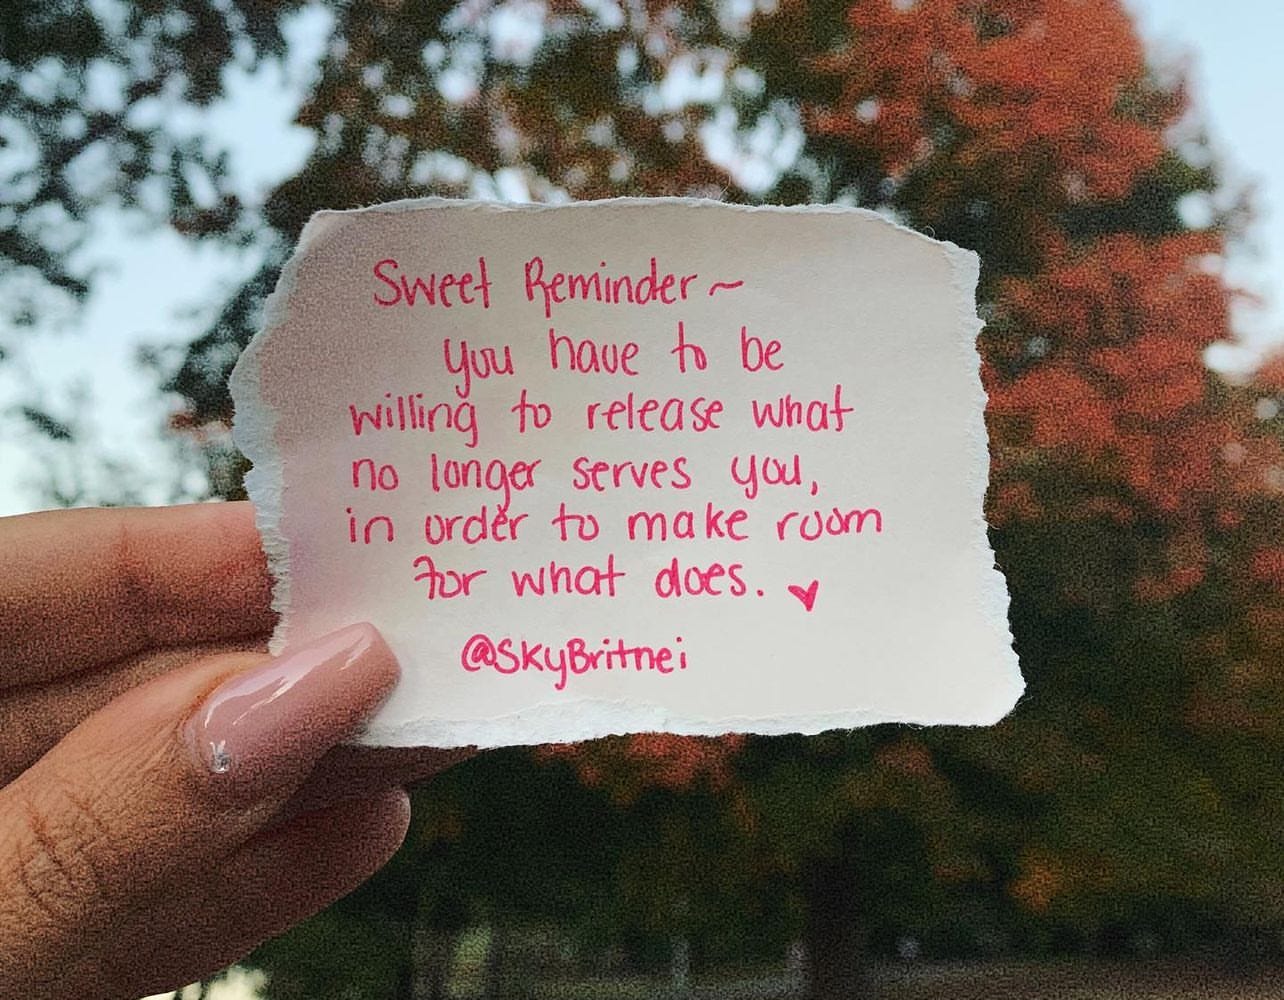 Sweet Reminder~
you have to be
willing to release what
no longer serves you,
in order to make room
for what does. ♥
@SkyBritnei